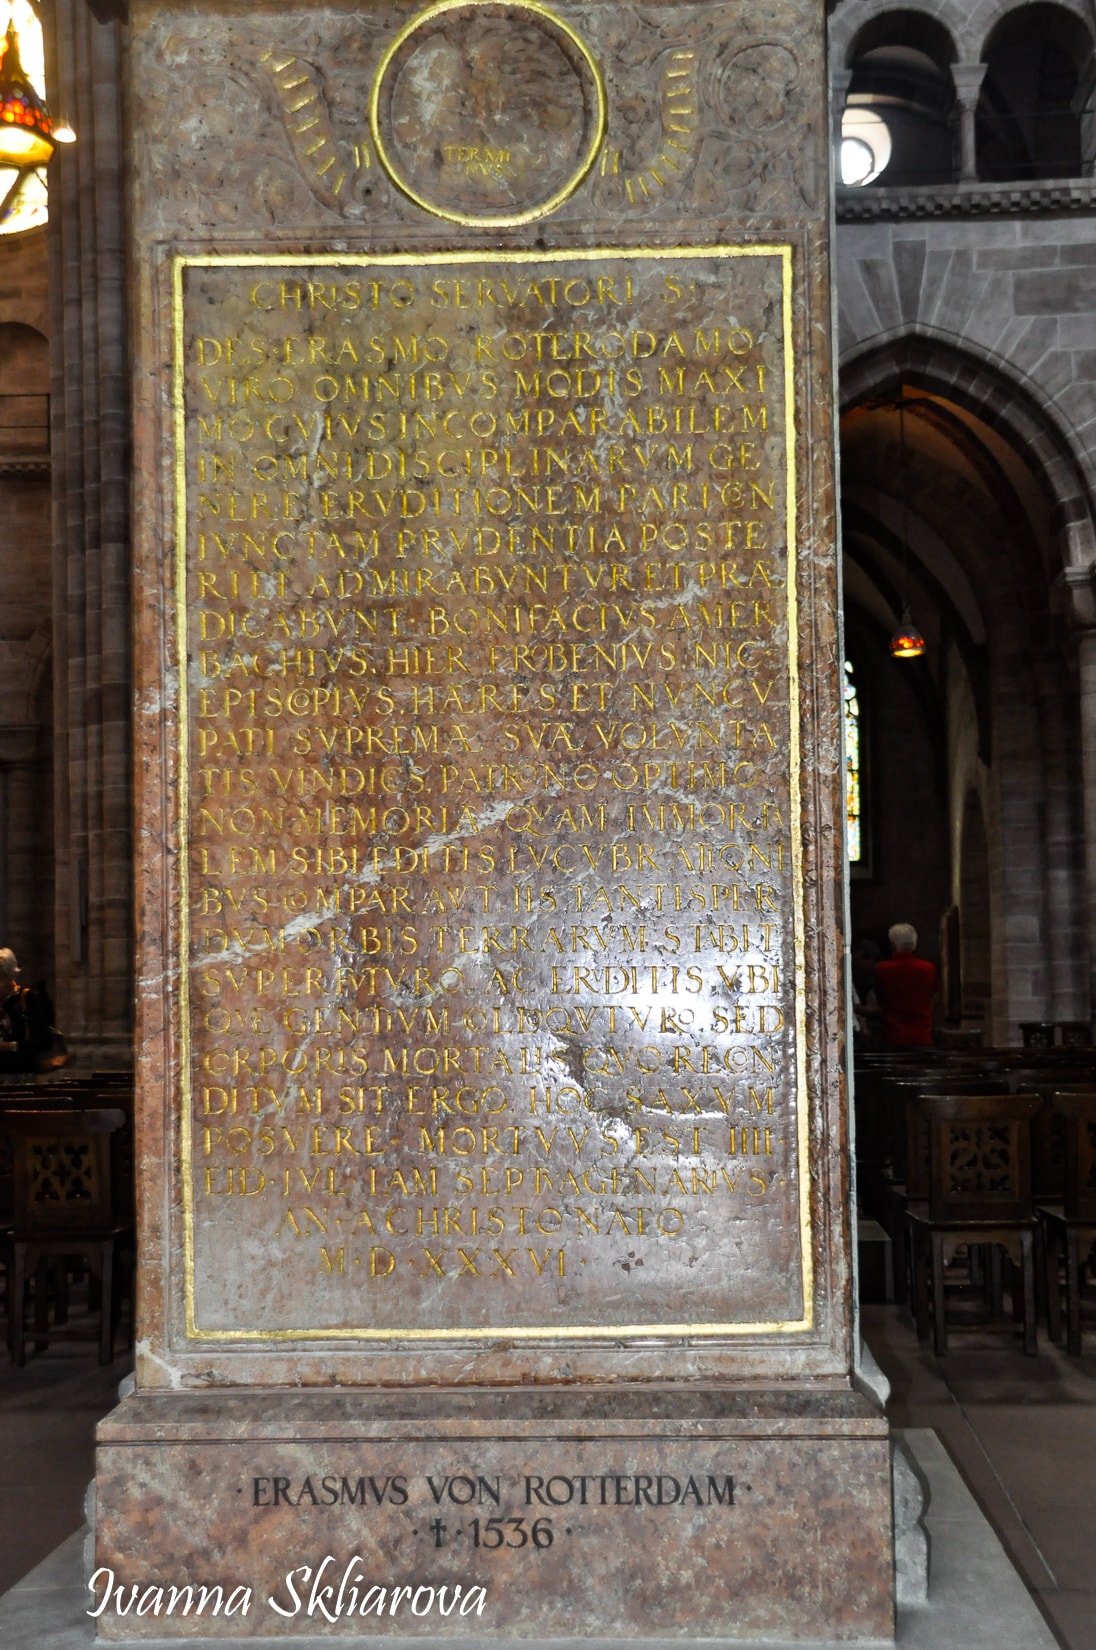 TERMI
NVS
CHRISTO SERVATORI S.
DES·ERASMO ROTERODAMO
VIRO OMNIBVS MODIS MAXI
MO CVIVS INCOMPARABILEM
IN OMNI DISCIPLINARVM GE
NERE ERVDITIONEM PARI CON
IVNCTAM PRVDENTIA POSTE
RI ET ADMIRABVNTVR ET PRÆ
DICABVNT·BONIFACIVS AMER
BACHIVS. HIER FROBENIVS. NIC
EPISCOPIVS. HÆRES. ET NVNCV
PATI SVPREMÆ SVÆ VOLVNTA
TIS VINDICES. PATRONO OPTIMO
NON MEMORIÆ, QVAM IMMORTA
LEM SIBI EDITIS LVCVBRATIONI
BVS COMPARAVT. IIS TANTISPER
DVM ORBIS TERRARVM STABIT
SVPERFVTVRO. AC ERVDITIS VBI
QVE GENTIVM COLLOQVTVRO. SED
CORPORIS MORTALIS QVO RECON
DITVM SIT ERGO. HOC SAXVM
POSVERE· MORTVVS EST IIII
EID·IVL·IAM SEPTVAGENARIVS·
AN·A CHRISTO NATO
M·D·XXXVI·
·ERASMVS VON ROTTERDAM·
·†·1536·
Ivanna Skliarova